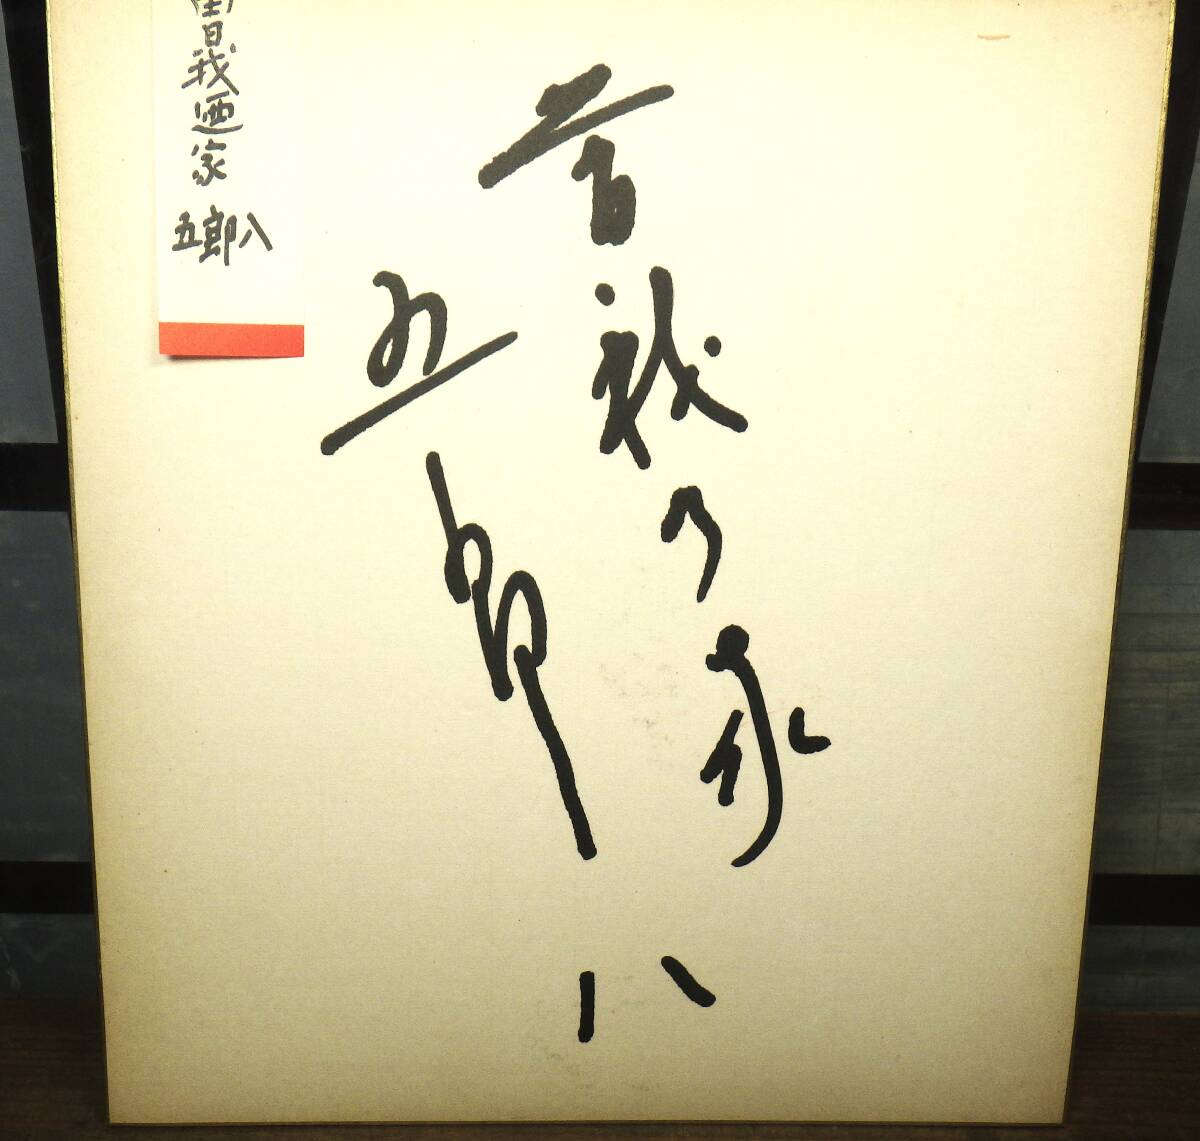 曽我乃家
五郎八
曽我廼家
五郎八